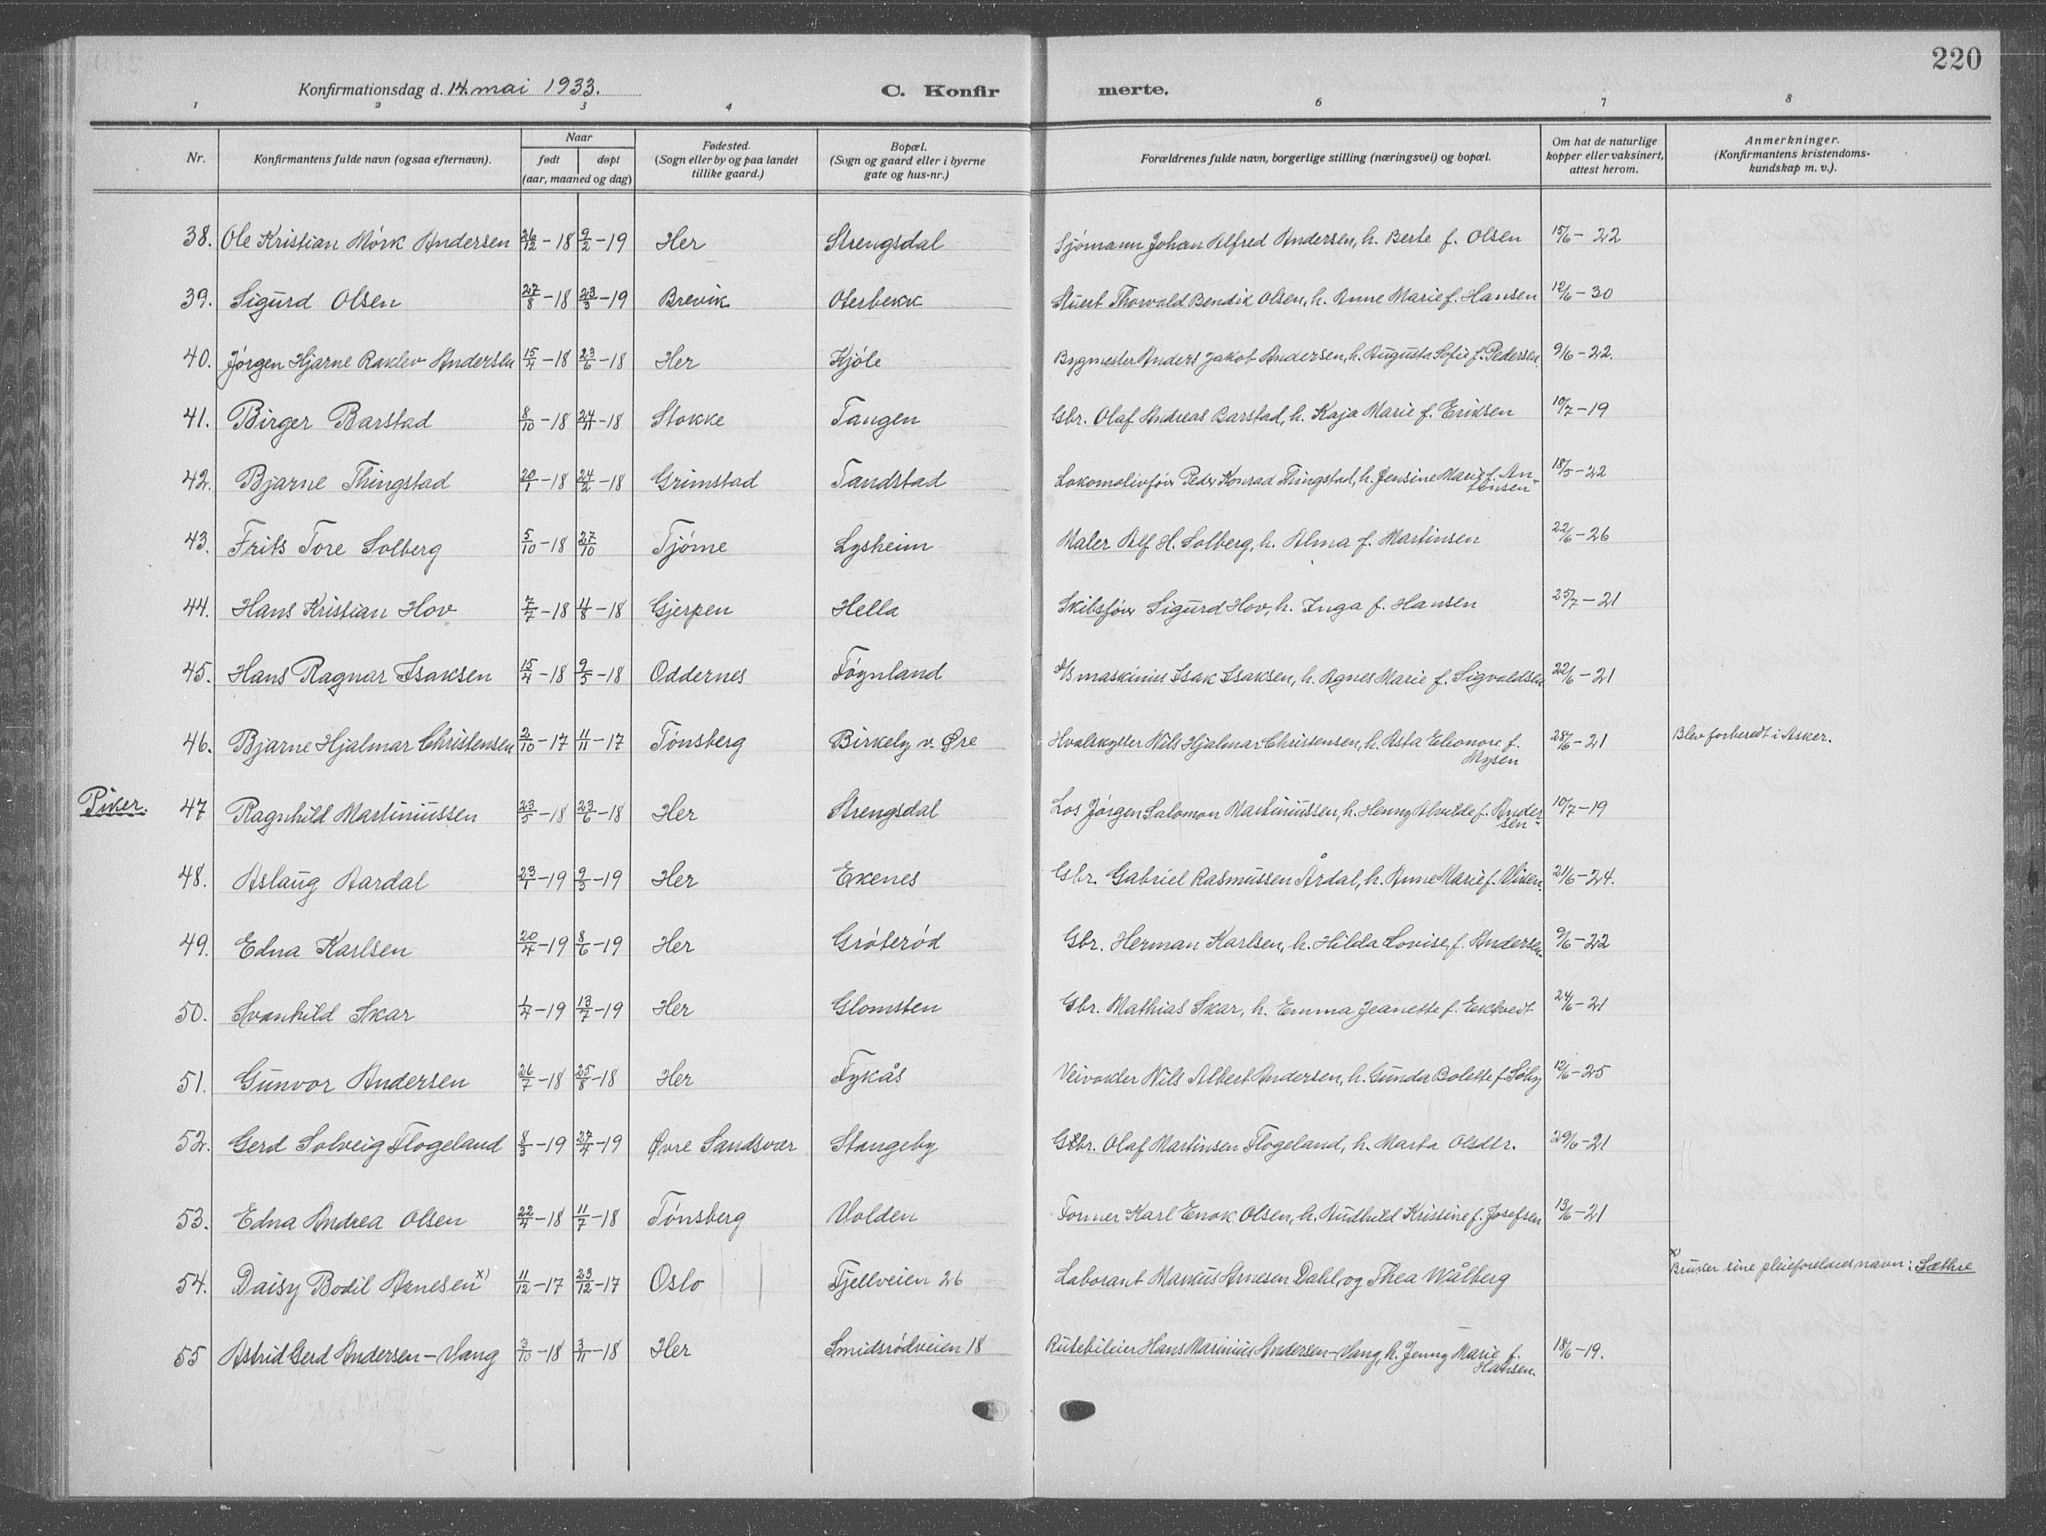 220
Konfirmationsdag d. 14. mai 1933. C. Konfir merte.
1 2 3 4 6 7 8
Nr. Konfirmantens fulde navn (ogsaa efternavn). Naar født døpt (aar, maaned og dag) Fødested. (Sogn eller by og paa landet tillike gaard.) Bopæl. (Sogn og gaard eller i byerne gate og hus-nr.) Forældrenes fulde navn, borgerlige stilling (næringsvei) og bopæl. Om hat de naturlige kopper eller vaksinert, attest herom. Anmerkninger. (Konfirmantens kristendoms-kundskap m. v.).
38. Ole Kristian Mørk Andersen 26/12-18 9/2-19 Her Strengsdal Sjømann Johan Alfred Andersen, h. Berte f. Olsen 15/6-22
39. Sigurd Olsen 27/8-18 23/3-19 Brevik Oterbekk Stuert Thorvald Bendik Olsen, h. Anne Marie f. Hansen 12/6-30
40. Jørgen Hjarne Raklev Andersen 15/4-18 23/6-18 Her Kjøle Bygmester Anders Jakob Andersen, h. Augusta Sofie f. Pedersen. 9/6-22.
41. Birger Barstad 8/10-18 24/11-18 Stokke Tangen Gbr. Olaf Andreas Barstad, h. Kaja Marie f. Eriksen 10/7-19
42. Bjarne Thingstad 20/1-18 24/2-18 Grimstad Tandstad Lokomotivfør Peder Konrad Thingstad, h. Jensine Marie f. An-
tonsen 18/5-22
43. Frits Tore Solberg 5/10-18 27/10 Tjøme Lysheim Maler Alf H. Solberg, h. Alma f. Martinsen 22/6-26
44. Hans Kristian Hov 7/7-18 4/8-18 Gjerpen Hella Skibsfører Sigurd Hov, h. Inga f. Hansen 25/7-21
45. Hans Ragnar Isaksen 15/4-18 9/5-18 Oddernes Føynland maskinist Isak Isaksen, h. Agnes Marie f. Sigvaldsen 22/6-21
46. Bjarne Hjalmar Christensen 2/10-17 11/11-17 Tønsberg Birkely v. Øre Hvalskytter Nils Hjalmar Christensen, h. Asta Eleonore f.
Mysen 28/6-21 Blev forberedt i Asker.
Piker. 47 Ragnhild Martiniussen 23/5-18 23/6-18 Her Strengsdal Los Jørgen Salomon Martiniussen, h. Henny Alvilde f. Ander-
sen 10/7-19
48. Aslaug Aardal 23/1-19 9/3-19 Her Ekenes Gbr. Gabriel Rasmussen Årdal, h. Anne Marie f. Viken. 21/6-24.
49. Edna Karlsen 20/4-19 8/6-19 Her Grøterød Gbr. Herman Karlsen, h. Hilda Lovise f. Andersen 9/6-22
50. Svanhild Skar 1/4-19 13/7-19 Her Glomsten Gbr. Mathias Skar, h. Emma Jeanette f. Ektvedt 24/6-21
51. Gunvor Andersen 26/7-18 25/8-18 Her Fykås Veivokter Nils Albert Andersen, h. Gunda Bolette f. Søby 12/6-25
52. Gerd Solveig Flogeland 8/3-19 27/4-19 Øvre Sandsvær Stangeby Gbr. Olaf Martinsen Flogeland, h. Marta Olsdtr. 29/6-21
53. Edna Andrea Olsen 22/4-18 11/7-18 Tønsberg Volden Former Karl Enok Olsen, h. Audhild Kristine f. Josefsen 13/6-21
54. Daisy Bodil Arnesen x) 11/12-17 23/12-17 Oslo Fjellveien 26 Laborant Markus Arnesen Dahl, og Thea Wålberg x) Bruker sine pleieforeldres navn: Sæthre
55 Astrid Gerd Andersen-Vang 3/10-18 3/11-18 Her Smidsrødveien 18 Rutebileier Hans Marinius Andersen-Vang, h. Jenny Marie f.
Hansen. 18/6-19.